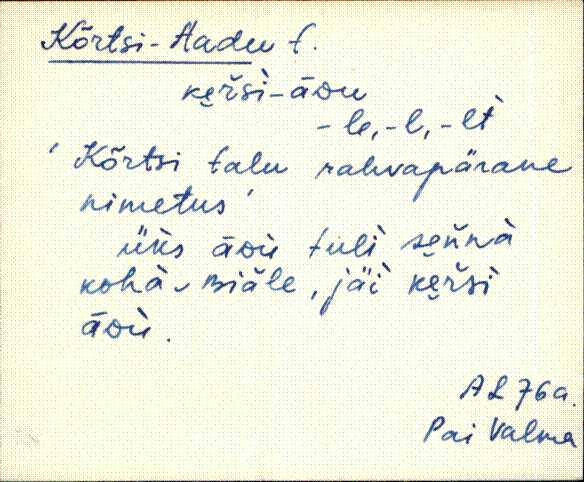 Kõrtsi-Aadu t.
kę̮ŕsì-āᴅu
-le, -l, -lt
' Kõrtsi talu rahvapärane
nimetus '
üks āᴅù tuĺì seńnà
kohà ᴘiäle, jäì kę̮ŕsì
āᴅù.
AL 76a.
Pai Valma